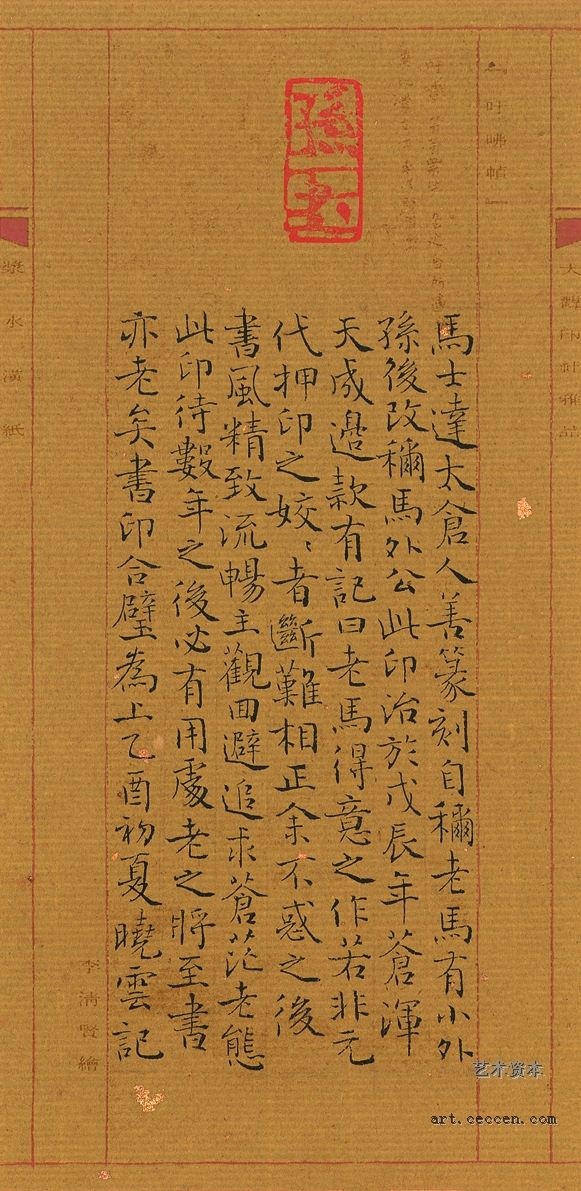 馬士達太倉人善篆刻自穪老馬有小外
孫後改穪馬外公此印治於戊辰年蒼渾
天成邉款有記曰老馬得意之作若非元
代押印之姣〻者斷難相正余不惑之後
書風精致流暢主觀回避追求蒼茫老態
此印待數年之後必有用處老之將至書
亦老矣書印合璧為上乙酉初夏曉雲記
李清賢繪
艺术资本
art.ceccen.com